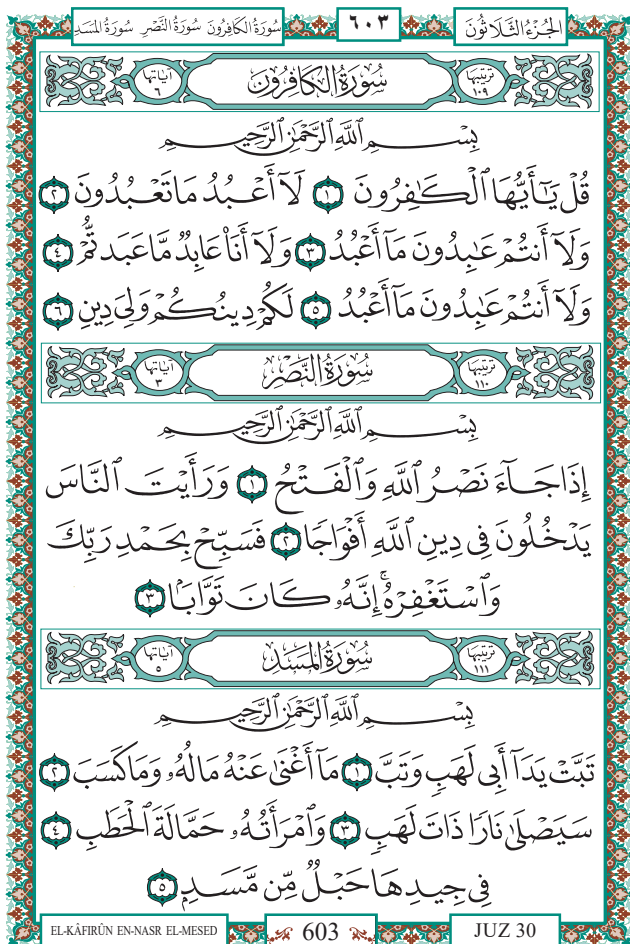 الجُزْءُ الثَّلَاثُونَ ٦٠٣ سُورَةُ الكَافِرُونَ سُورَةُ النَّصْرِ سُورَةُ المَسَدِ
تَرْتِيبُهَا ١٠٩ سُورَةُ الكَافِرُونَ آيَاتُهَا ٦
بِسْمِ ٱللَّهِ ٱلرَّحْمَٰنِ ٱلرَّحِيمِ
قُلْ يَٰٓأَيُّهَا ٱلْكَٰفِرُونَ ١ لَآ أَعْبُدُ مَا تَعْبُدُونَ ٢
وَلَآ أَنتُمْ عَٰبِدُونَ مَآ أَعْبُدُ ٣ وَلَآ أَنَا۠ عَابِدٌ مَّا عَبَدتُّمْ ٤
وَلَآ أَنتُمْ عَٰبِدُونَ مَآ أَعْبُدُ ٥ لَكُمْ دِينُكُمْ وَلِىَ دِينِ ٦
تَرْتِيبُهَا ١١٠ سُورَةُ النَّصْرِ آيَاتُهَا ٣
بِسْمِ ٱللَّهِ ٱلرَّحْمَٰنِ ٱلرَّحِيمِ
إِذَا جَآءَ نَصْرُ ٱللَّهِ وَٱلْفَتْحُ ١ وَرَأَيْتَ ٱلنَّاسَ
يَدْخُلُونَ فِى دِينِ ٱللَّهِ أَفْوَاجًا ٢ فَسَبِّحْ بِحَمْدِ رَبِّكَ
وَٱسْتَغْفِرْهُ ۚ إِنَّهُۥ كَانَ تَوَّابًۢا ٣
تَرْتِيبُهَا ١١١ سُورَةُ المَسَدِ آيَاتُهَا ٥
بِسْمِ ٱللَّهِ ٱلرَّحْمَٰنِ ٱلرَّحِيمِ
تَبَّتْ يَدَآ أَبِى لَهَبٍ وَتَبَّ ١ مَآ أَغْنَىٰ عَنْهُ مَالُهُۥ وَمَا كَسَبَ ٢
سَيَصْلَىٰ نَارًا ذَاتَ لَهَبٍ ٣ وَٱمْرَأَتُهُۥ حَمَّالَةَ ٱلْحَطَبِ ٤
فِى جِيدِهَا حَبْلٌ مِّن مَّسَدٍۭ ٥
EL-KÂFIRÛN EN-NASR EL-MESED 603 JUZ 30